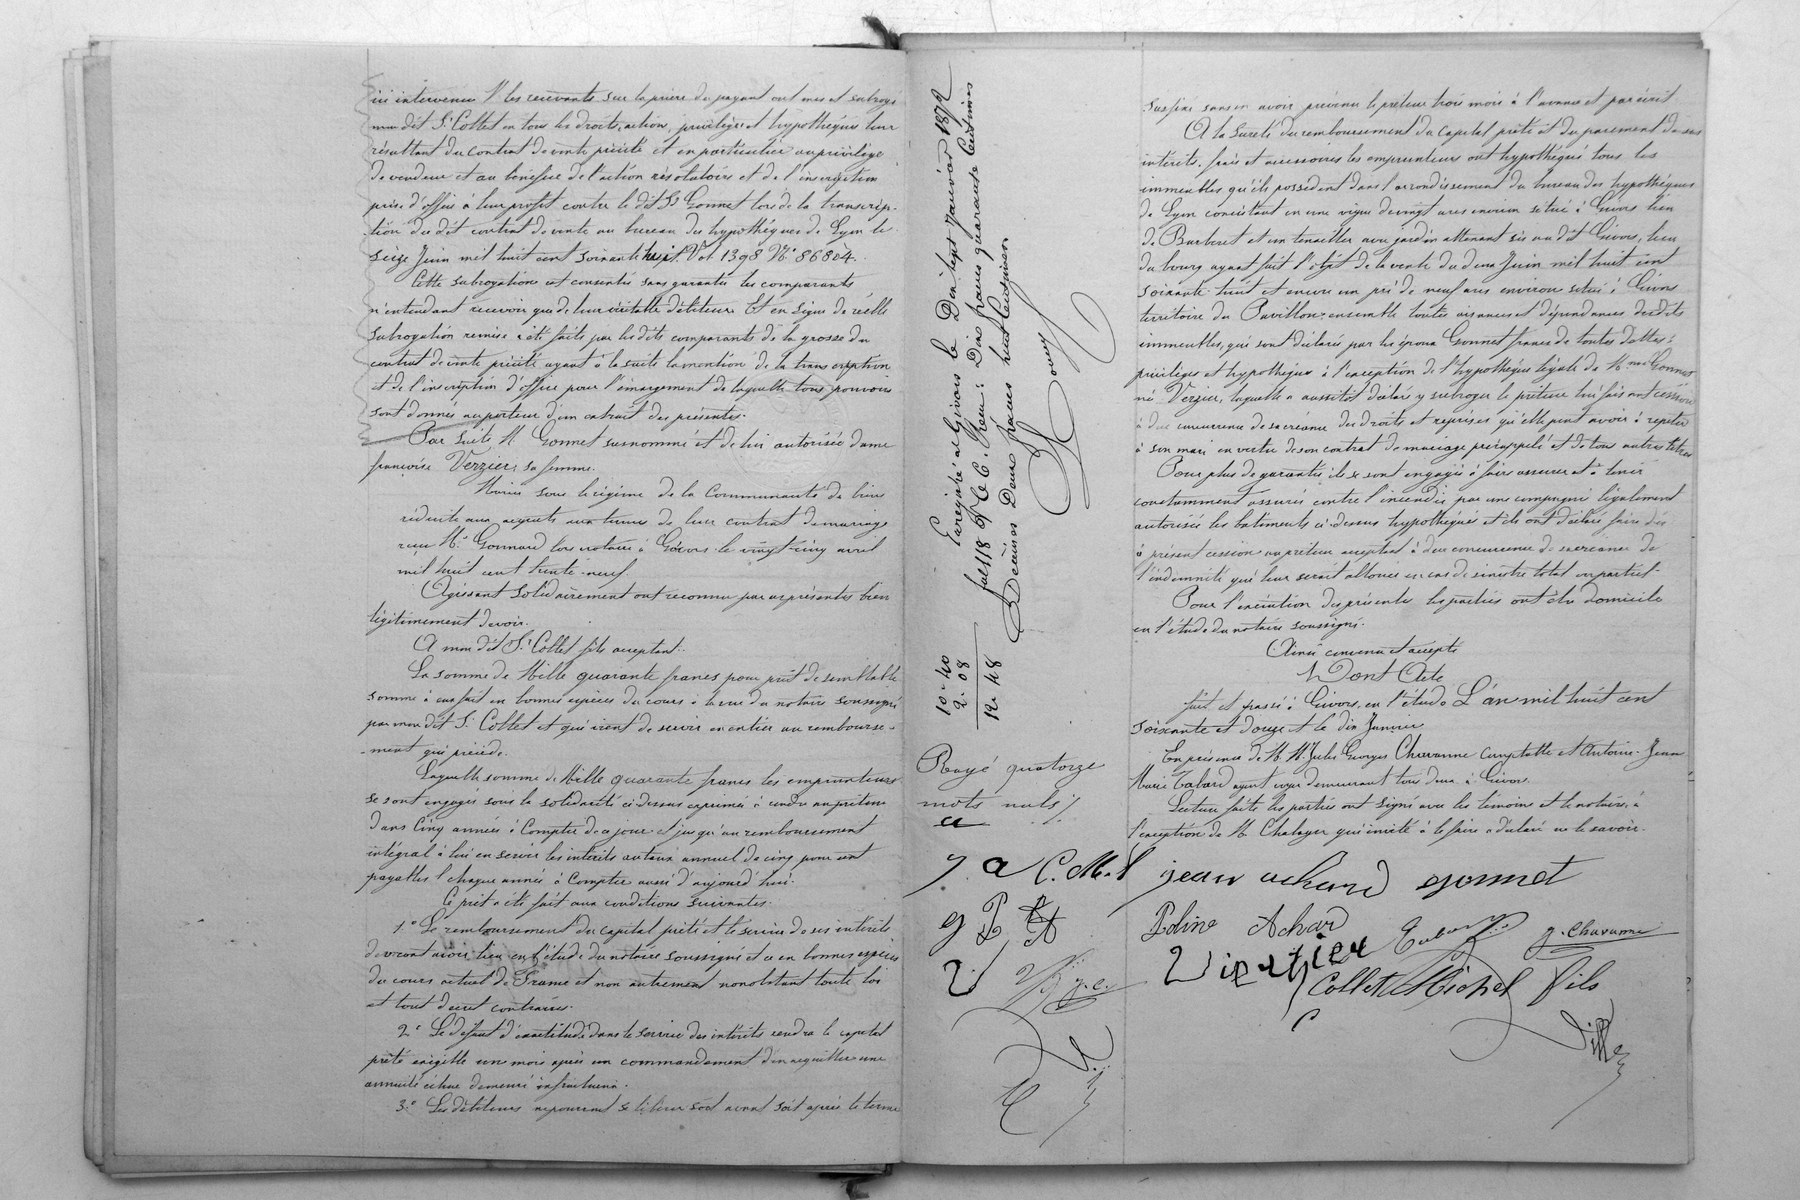 ici intervenu M. les recevants sur la prière du payant ont mis et subrogé
mon dit Sr Collet en tous les droits, action, privilèges et hypothèques leur
résultant du contrat de vente précité et en particulier au privilège
de vendeur et au bénéfice de l'action résolutoire et de l'inscription
prise d'office à leur profit contre le dit Sr Gonnet lors de la transcrip-
tion du dit contrat de vente au bureau des hypothèques de Lyon le
seize Juin mil huit cent soixante huit Vol. 1398 No. 86804.
Cette subrogation est consentie sans garantie les comparants
n'entendant recevoir que de leur véritable débiteur. Et en signe de réelle
subrogation remise a été faite par les dits comparants de la grosse du
contrat de vente précité ayant à la suite la mention de la transcription
et de l'inscription d'office pour l'émargement de laquelle tous pouvoirs
sont donnés au porteur d'un extrait des présentes.
Par suite M. Gonnet surnommé et de lui autorisée dame
françoise Verzier, sa femme.
Mariés sous le régime de la Communauté de biens
réduite aux acquets aux termes de leur contrat de mariage
reçu Me Gonnard lors notaire à Givors le vingt-cinq avril
mil huit cent trente-neuf.
Agissant solidairement ont reconnu par ces présentes bien
légitimement devoir.
A mon dit Sr Collet fils acceptant.
La somme de Mille quarante francs pour prêt de semblable
somme à eux fait en bonnes espèces du cours à la vue du notaire soussigné
par mon dit Sr Collet et qui vient de servir en entier au rembourse-
-ment qui précède.
Laquelle somme de Mille quarante francs les emprunteurs
se sont engagés sous la solidarité ci-dessus exprimée à rendre au prêteur
dans Cinq années à Compter de ce jour et jusqu'au remboursement
intégral à lui en servir les intérêts au taux annuel de cinq pour cent
payables chaque année à Compter aussi d'aujourd'hui.
Ce prêt a été fait aux conditions suivantes.
1.o Le remboursement du capital prêté et le service de ses intérêts
devront avoir lieu en l'étude du notaire soussigné et ce en bonnes espèces
du cours actuel de France et non autrement nonobstant toute loi
et tout décret contraires.
2.o Le défaut d'exactitude dans le service des intérêts rendra le capital
prêté exigible un mois après un commandement d'en acquitter une
annuité échue demeuré infructueux.
3.o Les débiteurs ne pourront se libérer soit avant soit après le terme
Enregistré à Givors le Dix sept Janvier 1872
fol. 118 Vo C. 6. Reçu: Dix francs quarante Centimes
Décimes Deux francs huit Centimes
10. 40
2. 08
12. 48
Rayé quatorze
mots nuls ./.
susfixé sans en avoir prévenu le prêteur trois mois à l'avance et par écrit
A la sureté du remboursement du Capital prêté et du paiement de ses
intérêts, frais et accessoires les emprunteurs ont hypothéqué tous les
immeubles qu'ils possèdent dans l'arrondissement du bureau des hypothèques
de Lyon consistant en une vigne de vingt ares environ située à Givors lieu
de Barberet et un tenailler avec jardin attenant sis au dit Givors, lieu
du bourg ayant fait l'objet de la vente du deux Juin mil huit cent
soixante-huit et encore un pré de neuf ares environ situé à Givors
territoire du Pavillon ensemble toutes aisances et dépendances desdits
immeubles, qui sont déclarés par les époux Gonnet francs de toutes dettes,
privilèges et hypothèques à l'exception de l'hypothèque légale de Mme Gonnet
née Verzier, laquelle a aussitôt déclaré y subroger le prêteur lui faisant cession
à due concurrence de sa créance des droits et reprises qu'elle peut avoir à répéter
à son mari en vertu de son contrat de mariage prérappelé et de tous autres titres
Pour plus de garantie, ils se sont engagés à faire assurer et à tenir
constamment assurés contre l'incendie par une compagnie légalement
autorisée les bâtiments ci-dessus hypothéqués et ils ont déclaré faire dès
à présent cession au prêteur acceptant à due concurrence de sa créance de
l'indemnité qui leur serait allouée en cas de sinistre total ou partiel.
Pour l'exécution des présentes les parties ont élu domicile
en l'étude du notaire soussigné.
Ainsi convenu et accepté
Dont Acte
fait et passé à Givors, en l'étude L'an mil huit cent
soixante et douze et le dix Janvier
En présence de M. M. Jules Georges Chavanne comptable et Antoine-Jean
Marie Tabard agent voyer demeurant tous deux à Givors.
Lecture faite les parties ont signé avec les témoins et le notaire, à
l'exception de M. Chalayer qui invité à le faire a déclaré ne le savoir.
j. a C. M. f jean achard gonnet
g P A Poline Achar Tabard J. Chavanne
V. J. C. Vierzier Collet Michel fils